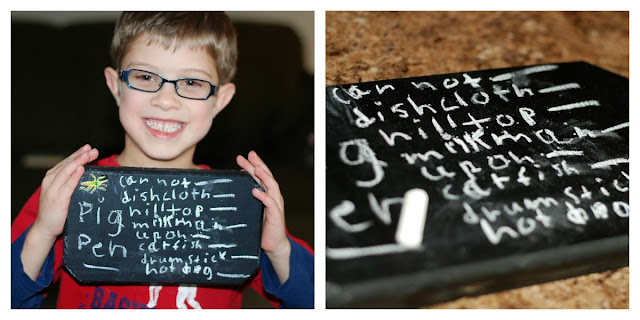 can not
dishcloth
Pig hilltop
milkman
upon
Pen catfish
drumstick
hot dog
can not
dishcloth
g hilltop
milkman
upon
en catfish
drumstick
hot dog